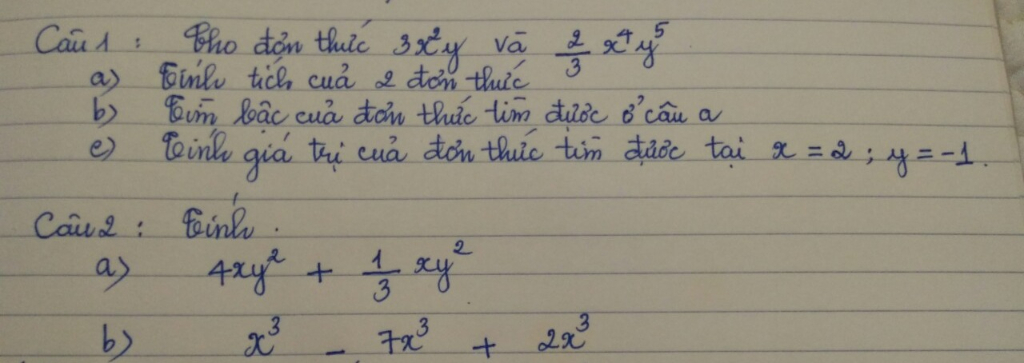 Câu 1 : Cho đơn thức 3x²y và 2/3 x⁴y⁵
a) Tính tích của 2 đơn thức
b) Tìm bậc của đơn thức tìm được ở câu a
c) Tính giá trị của đơn thức tìm được tại x = 2 ; y = -1.
Câu 2 : Tính.
a) 4xy² + 1/3 xy²
b) x³ - 7x³ + 2x³